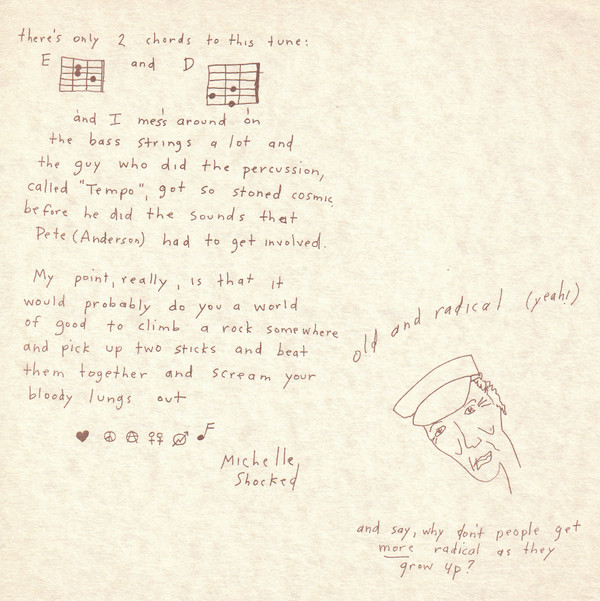 there's only 2 chords to this tune:
E and D
and I mess around on
the bass strings a lot and
the guy who did the percussion,
called "Tempo", got so stoned cosmic
before he did the sounds that
Pete (Anderson) had to get involved.
My point, really, is that it
would probably do you a world
of good to climb a rock somewhere
and pick up two sticks and beat
them together and scream your
bloody lungs out
Michelle
Shocked
old and radical (yeah!)
and say, why don't people get
more radical as they
grow up?